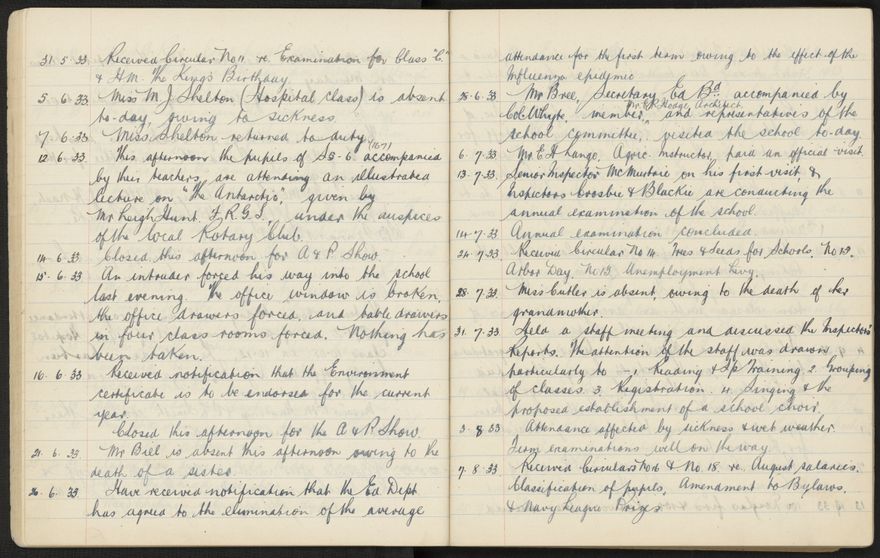 31. 5. 33 Received Circular No 11 re. Examination for Class "C".
& H.M. The King's Birthday.
5. 6. 33 Miss M J Shelton (Hospital Class) is absent
to-day owing to sickness
7. 6. 33 Miss Shelton returned to duty
12. 6. 33 This afternoon the pupils of S5-6 (167) accompanied
by their teachers, are attending an illustrated
lecture on "The Antarctic", given by
Mr Keigh Hunt. F.R.G.S., under the auspices
of the local Rotary Club.
14. 6. 33 Closed this afternoon for A & P. Show.
15. 6. 33 An intruder forced his way into the school
last evening. The office window is broken,
the office drawers forced, and table drawers
in four class rooms forced. Nothing has
been taken.
16. 6. 33 Received notification that the Environment
certificate is to be endorsed for the current
year.
Closed this afternoon for the A & P. Show.
21. 6. 33 Mr Bell is absent this afternoon owing to the
death of a sister
26. 6. 33 Have received notification that the Ed Dept
has agreed to the elimination of the average
attendance for the first term owing to the effect of the
Influenza epidemic
28. 6. 33 Mr Bree, Secretary Ed Bd accompanied by
Col. Whyte, member, Mr Hodge, Architect, and representatives of the
school committee, visited the school to-day.
6. 7. 33 Mr E A Lange, Agric. Instructor, paid an official visit.
13. 7. 33 Senior Inspector McMurtrie on his first visit &
Inspectors Crosbie & Blackie are conducting the
annual examination of the school.
14. 7. 33 Annual examination concluded.
24. 7. 33 Received Circular No 14. Trees & Seeds for Schools, No 12.
Arbor Day. No 13. Unemployment Levy.
28. 7. 33 Miss Cutler is absent, owing to the death of her
grandmother.
31. 7. 33 Held a staff meeting and discussed the Inspectors'
Reports. The attention of the staff was drawn
particularly to 1, Reading & Sp. Training 2. Grouping
of classes 3. Registration. 4. Singing & the
proposed establishment of a school choir.
3. 8. 33 Attendance affected by sickness & wet weather.
Term examinations well on the way
7. 8. 33 Received Circulars No 16 & No. 18 re. August salaries.
Classification of pupils, Amendment to Bylaws,
& Navy League Prizes